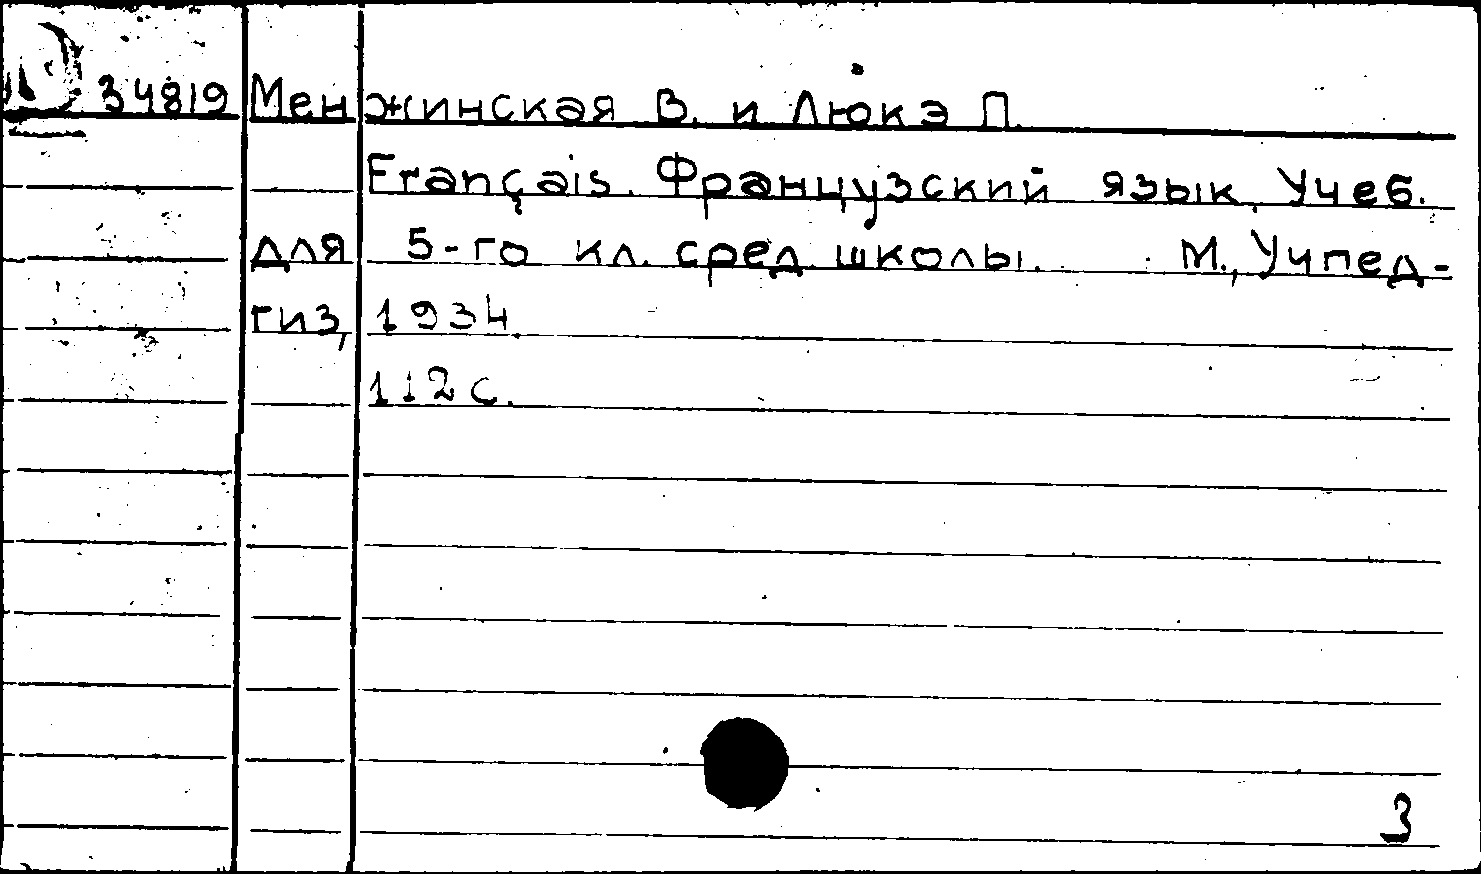 34819 Менжинская В. и Люкэ П.
Français. Французский язык. Учеб.
для 5-го кл. сред. школы. М., Учпед-
гиз, 1934.
112 с.
3